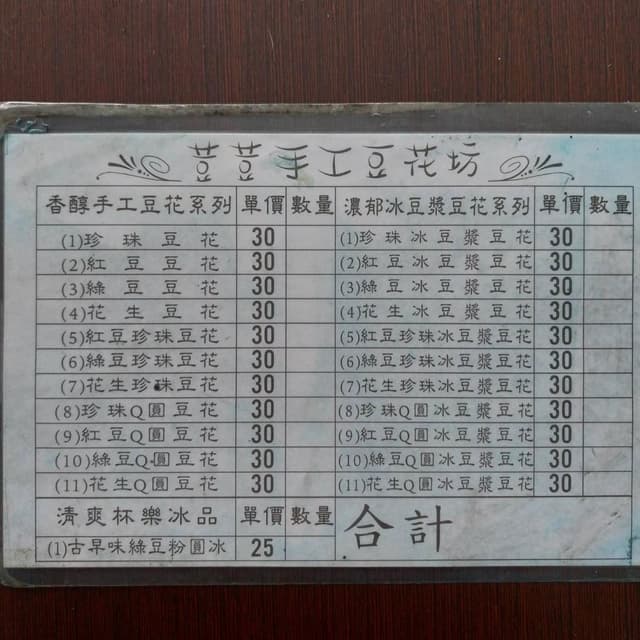 荳荳手工豆花坊
香醇手工豆花系列 單價 數量 濃郁冰豆漿豆花系列 單價 數量
(1)珍珠豆花 30 (1)珍珠冰豆漿豆花 30
(2)紅豆豆花 30 (2)紅豆冰豆漿豆花 30
(3)綠豆豆花 30 (3)綠豆冰豆漿豆花 30
(4)花生豆花 30 (4)花生冰豆漿豆花 30
(5)紅豆珍珠豆花 30 (5)紅豆珍珠冰豆漿豆花 30
(6)綠豆珍珠豆花 30 (6)綠豆珍珠冰豆漿豆花 30
(7)花生珍珠豆花 30 (7)花生珍珠冰豆漿豆花 30
(8)珍珠Q圓豆花 30 (8)珍珠Q圓冰豆漿豆花 30
(9)紅豆Q圓豆花 30 (9)紅豆Q圓冰豆漿豆花 30
(10)綠豆Q圓豆花 30 (10)綠豆Q圓冰豆漿豆花 30
(11)花生Q圓豆花 30 (11)花生Q圓冰豆漿豆花 30
清爽杯樂冰品 單價 數量 合計
(1)古早味綠豆粉圓冰 25